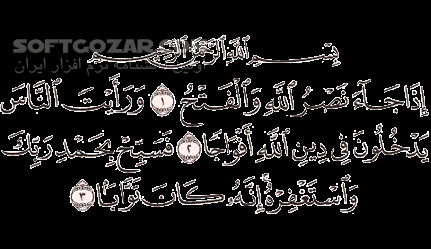 SOFTGOZAR.COM
اولین دانشنامه نرم افزار ایران
بِسْمِ ٱللَّهِ ٱلرَّحْمَٰنِ ٱلرَّحِيمِ
إِذَا جَآءَ نَصْرُ ٱللَّهِ وَٱلْفَتْحُ ١ وَرَأَيْتَ ٱلنَّاسَ
يَدْخُلُونَ فِى دِينِ ٱللَّهِ أَفْوَاجًا ٢ فَسَبِّحْ بِحَمْدِ رَبِّكَ
وَٱسْتَغْفِرْهُ إِنَّهُۥ كَانَ تَوَّابًۢا ٣